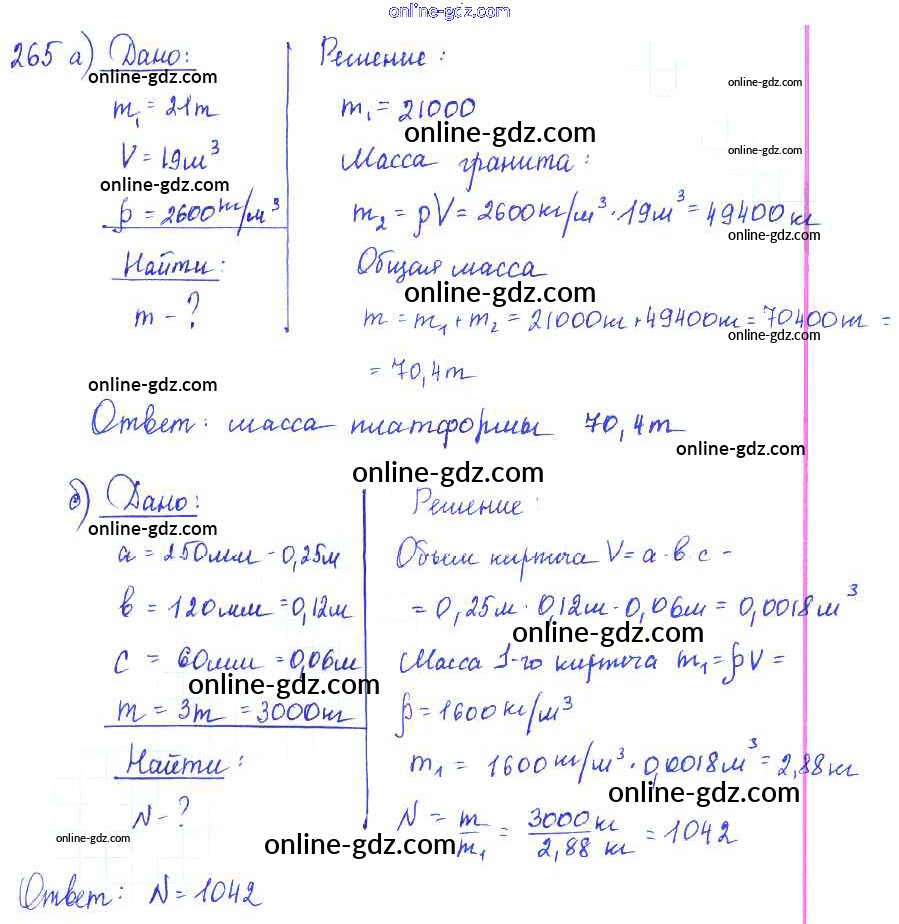 online-gdz.com
265 а) Дано:
online-gdz.com
m₁ = 21т
V = 19м³
online-gdz.com
ρ = 2600кг/м³
Найти:
m - ?
online-gdz.com
Решение:
online-gdz.com
m₁ = 21000
online-gdz.com
online-gdz.com
Масса гранита:
m₂ = ρV = 2600кг/м³ · 19м³ = 49400кг
online-gdz.com
Общая масса
online-gdz.com
m = m₁ + m₂ = 21000кг + 49400кг = 70400кг =
online-gdz.com
= 70,4т
Ответ: масса платформы 70,4т
online-gdz.com
online-gdz.com
б) Дано:
online-gdz.com
а = 250мм - 0,25м
в = 120мм = 0,12м
с = 60мм = 0,06м
online-gdz.com
m = 3т = 3000кг
Найти:
N - ?
online-gdz.com
Решение:
Объем кирпича V = а · в · с -
= 0,25м · 0,12м · 0,06м = 0,0018м³
online-gdz.com
Масса 1-го кирпича m₁ = ρV =
ρ = 1600кг/м³
m₁ = 1600кг/м³ · 0,0018м³ = 2,88кг
online-gdz.com
N = m/m₁ = 3000кг/2,88 кг = 1042
online-gdz.com
Ответ: N = 1042